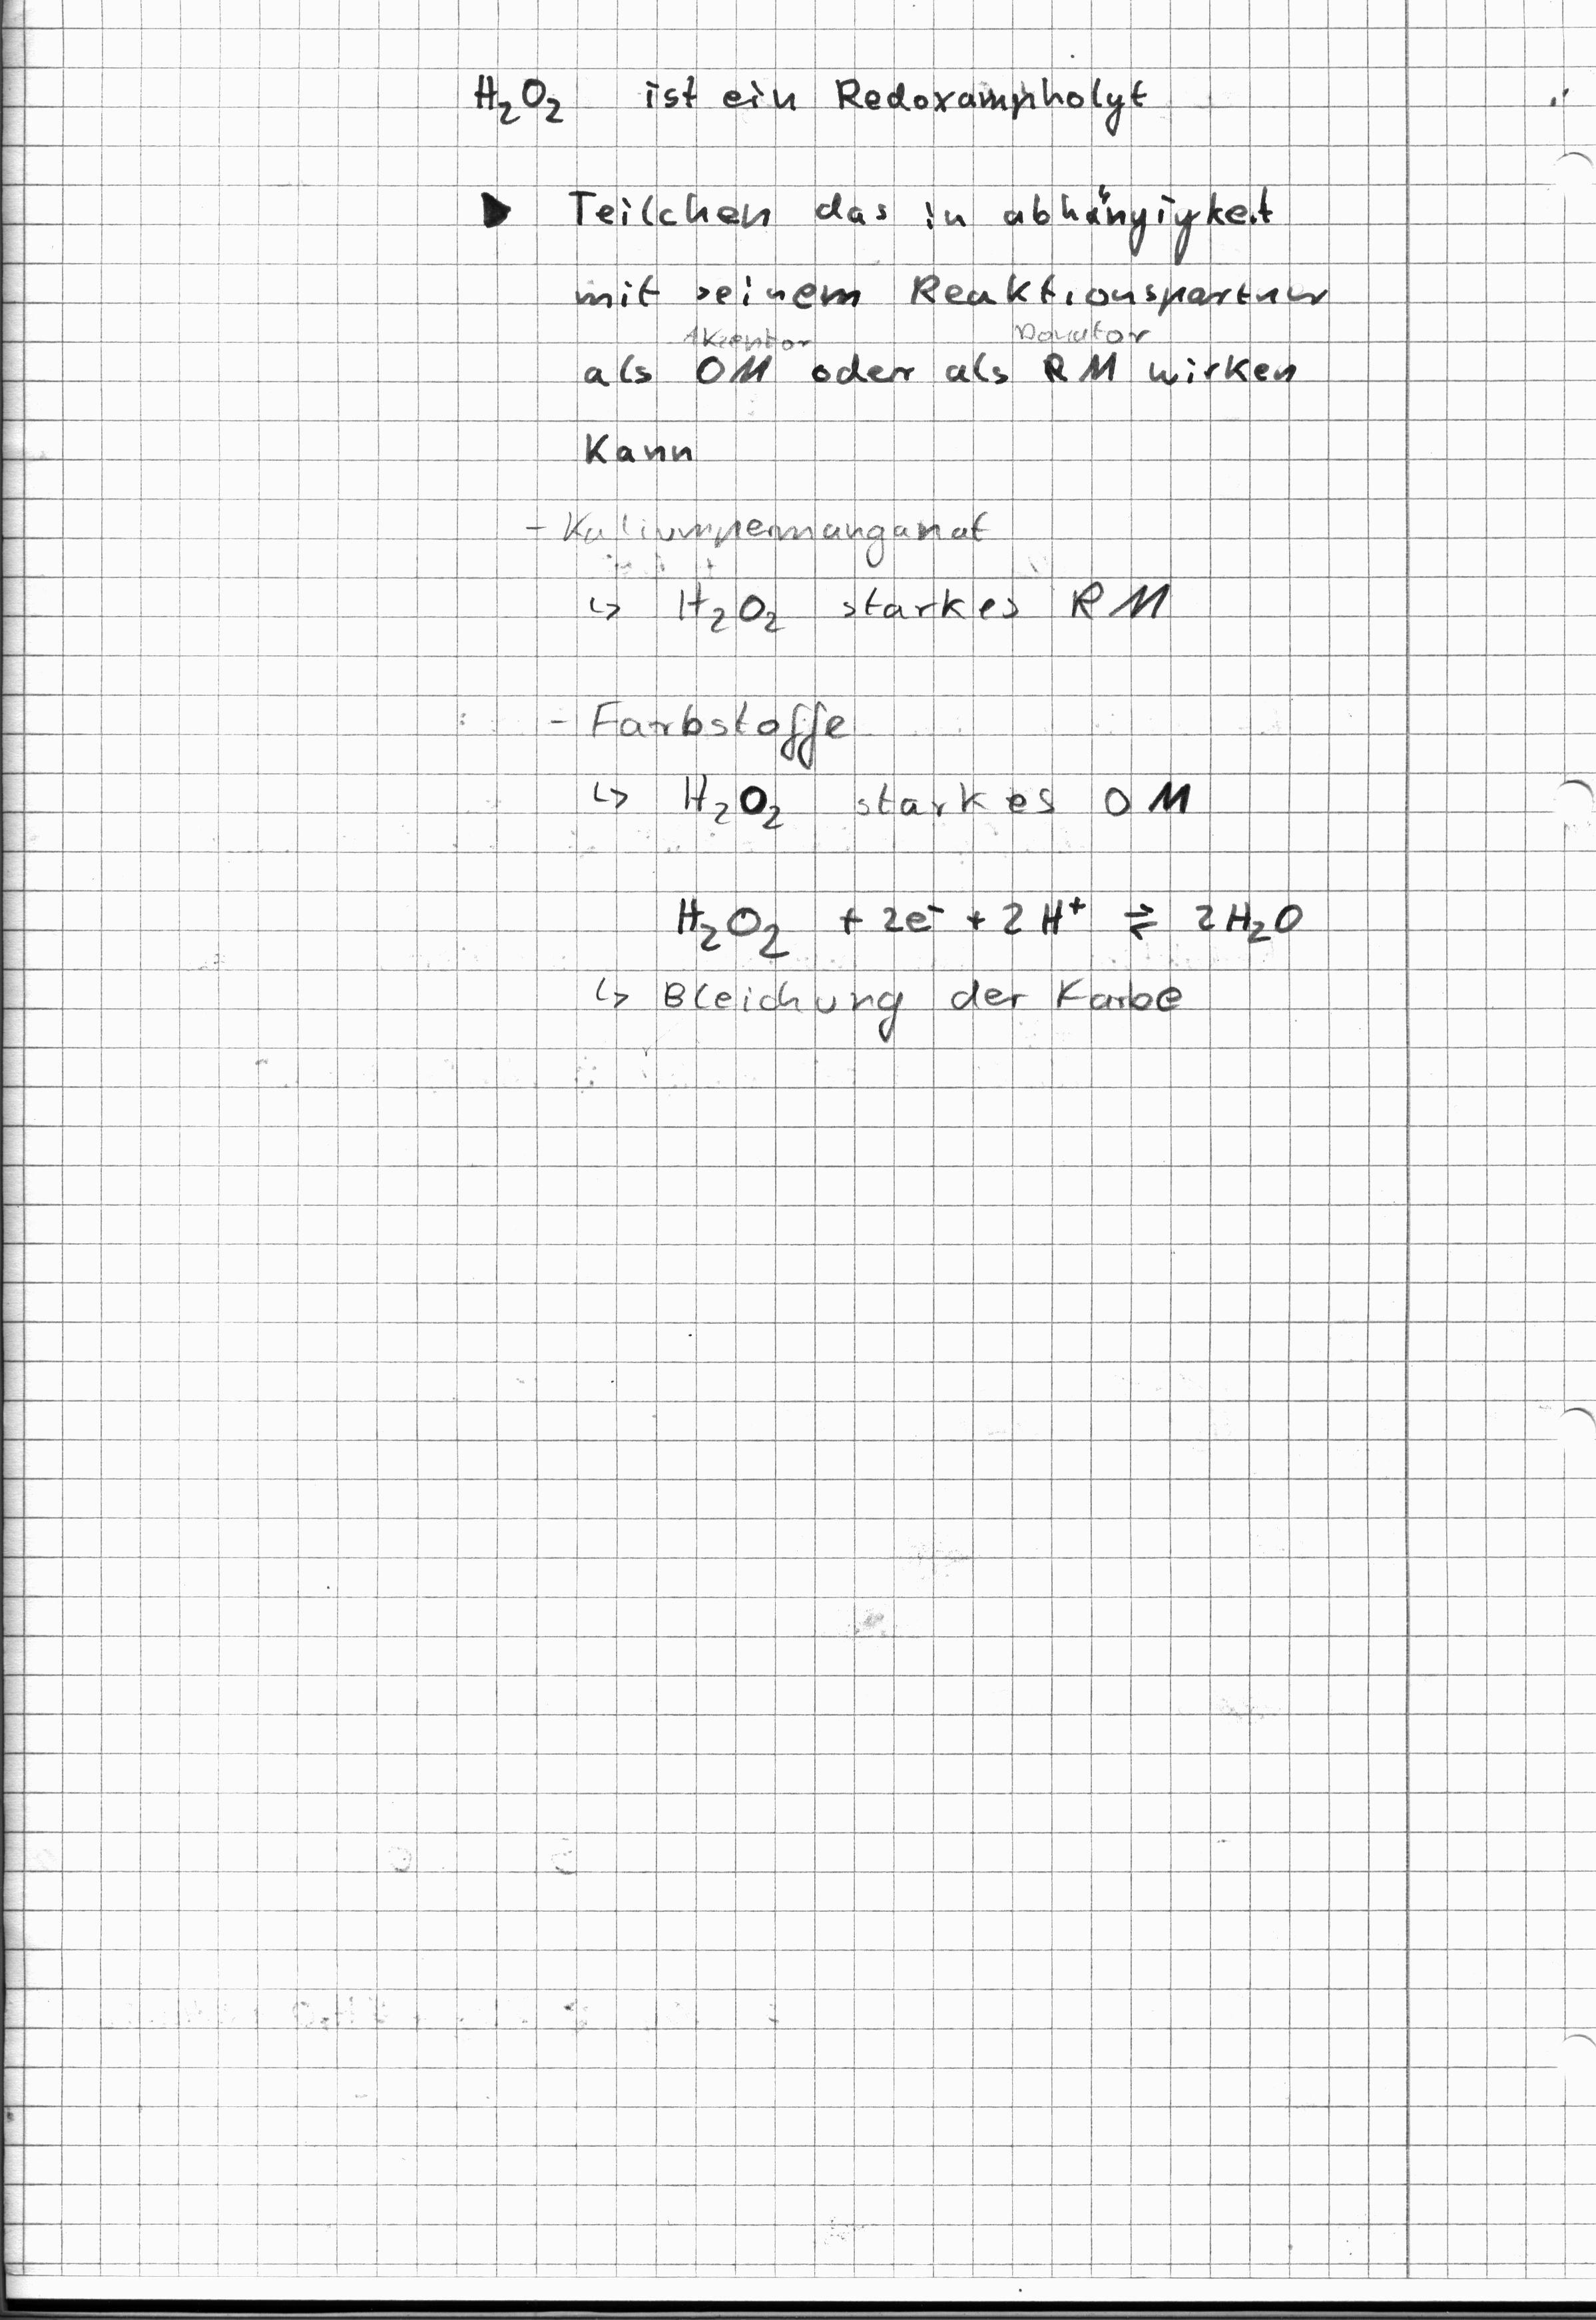 H₂O₂ ist ein Redoxampholyt
▶ Teilchen das in abhängigkeit
mit seinem Reaktionspartner
Akzeptor Donator
als OM oder als RM wirken
Kann
- Kaliumpermanganat
↳ H₂O₂ starkes RM
- Farbstoffe
↳ H₂O₂ starkes OM
H₂O₂ + 2e⁻ + 2H⁺ ⇌ 2H₂O
↳ Bleichung der Farbe